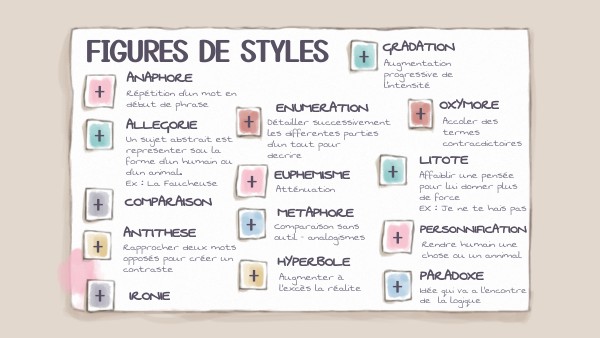 FIGURES DE STYLES
ANAPHORE
Répétition d'un mot en
début de phrase
ALLEGORIE
Un sujet abstrait est
representer sou la
forme d'un humain ou
d'un animal.
Ex : La Faucheuse
COMPARAISON
ANTITHESE
Rapprocher deux mots
opposés pour créer un
contraste
IRONIE
ENUMERATION
Détailler successivement
les differentes parties
d'un tout pour
decrire
EUPHEMISME
Atténuation
METAPHORE
Comparaison sans
outil - analogismes
HYPERBOLE
Augmenter à
l'excès la réalite
GRADATION
Augmentation
progressive de
l'intensité
OXYMORE
Accoler des
termes
contradictoires
LITOTE
Affaiblir une pensée
pour lui donner plus
de force
EX : Je ne te hais pas
PERSONNIFICATION
Rendre humain une
chose ou un annimal
PARADOXE
Idée qui va a l'encontre
de la logique